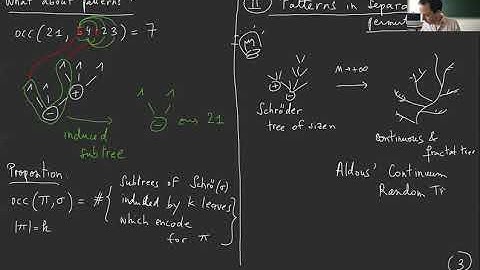 What about patterns
occ(21, 54123) = 7
1 1 1 1 1
induced
subtree
21
Proposition
occ(π, σ) = # { Subtrees of Schrö(σ)
induced by k leaves
which encode
for π }
|π|=k
II Patterns in Separa
permut
Schröder
tree of size n
n→+∞
continuous &
fractal tree
Aldous' Continuum
Random Tr
3